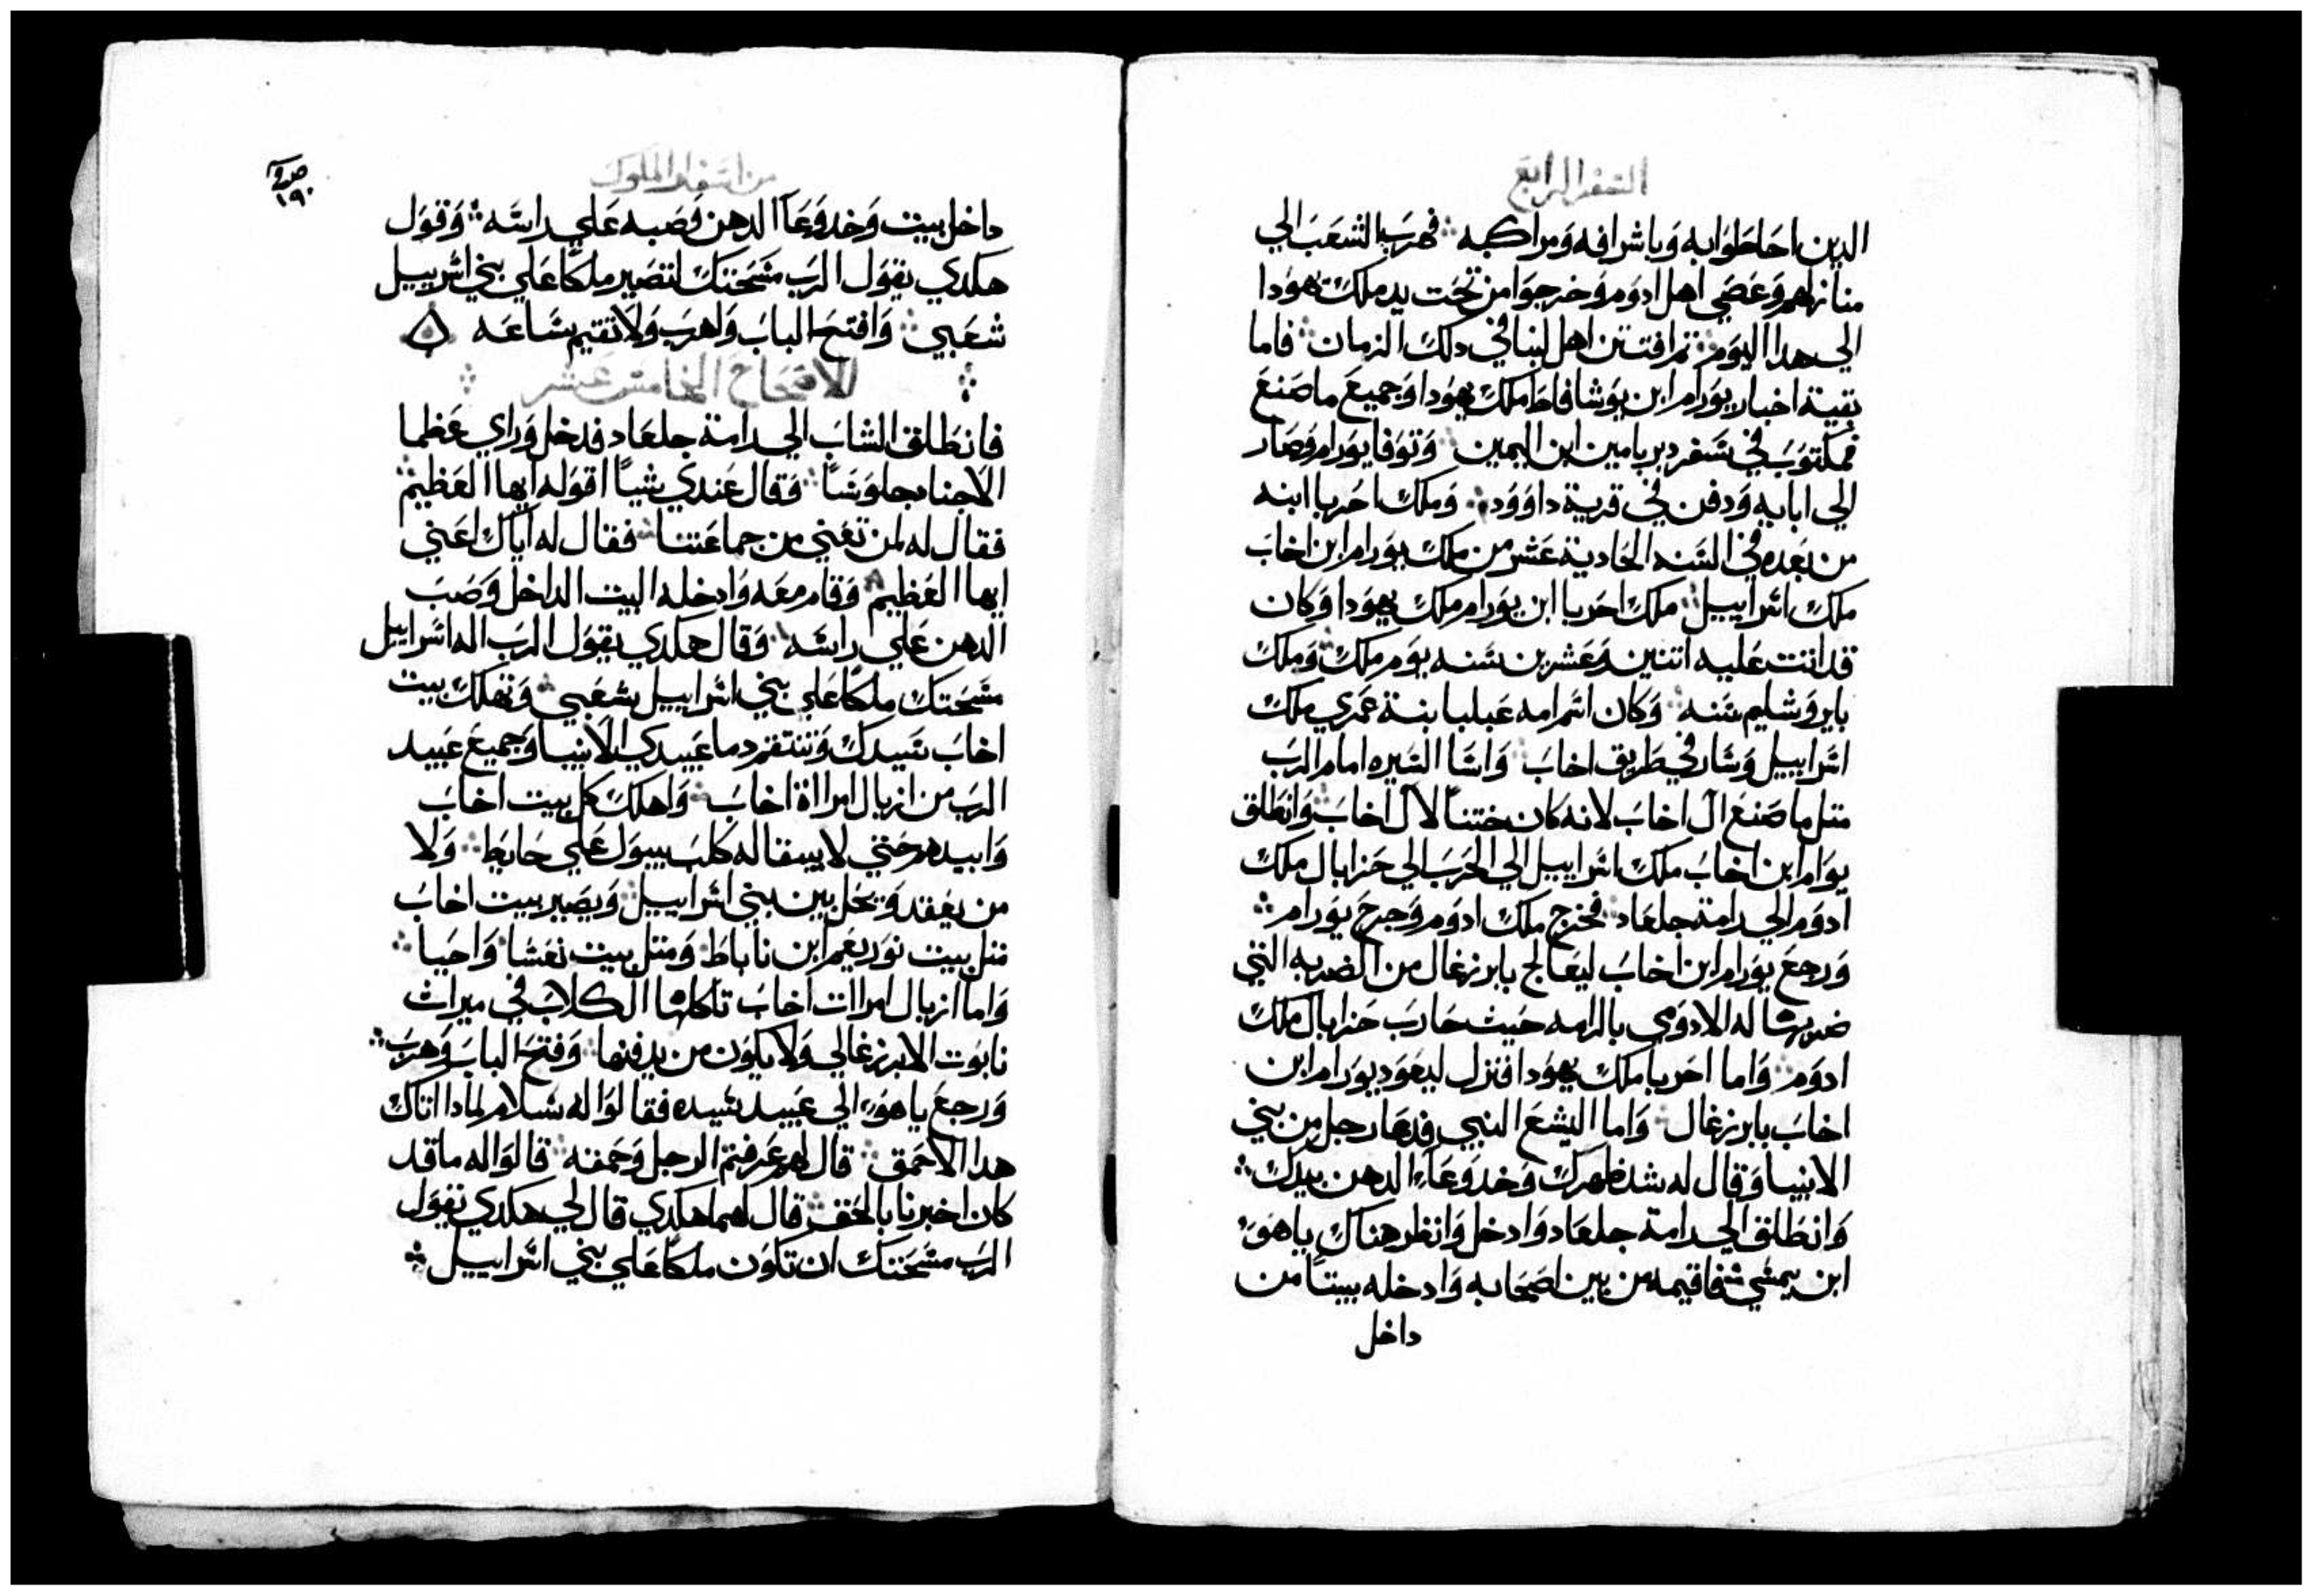 السفر الرابع
الدين احاطوا به وباشرافه ومراكبه ܀ فهرب الشعب الي
منازلهم وعصي اهل ادوم وخرجوا من تحت يد ملك يهودا
الي هدا اليوم ܀ تم افتتن اهل لبنا في دلك الزمان ܀ فاما
بقية اخبار يورام ابن يوشافاط ملك يهودا وجميع ما صنع
فمكتوب في سفر دبريامين ابن اليمين ܀ وتوفا يورام وصار
الي ابايه ودفن في قرية داوود ܀ وملك احزيا ابنه
من بعده في السنه الحادية عشر من ملك يورام ابن اخاب
ملك اسراييل ܀ ملك احزيا ابن يورام ملك يهودا وكان
قد اتت عليه اتنين وعشرين سنه يوم ملك ܀ وملك
بايروشليم سنه ܀ وكان اسم امه عبليا بنة عمري ملك
اسراييل وسار في طريق اخاب ܀ واسا السيره امام الرب
متل ما صنع ال اخاب لانه كان ختناً لال اخاب ܀ وانطلق
يوام ابن اخاب ملك اسراييل الي الحرب الي حزايال ملك
ادوم الي رامة جلعاد ܀ فخرج ملك ادوم وجرح يورام ܀
ورجع يورام ابن اخاب ليعالج بايرزغال من الضربه التي
ضربها له الادومي بالرامه حيث حارب حزايال ملك
ادوم ܀ واما احزيا ملك يهودا فنزل ليعود يورام ابن
اخاب بايرزغال ܀ واما اليشع النبي فدعا رجل من بني
الانبيا وقال له شد ظهرك وخد وعاء الدهن بيدك ܀
وانطلق الي رامة جلعاد وادخل وانظر هناك ياهوء
ابن يمشي شفاقيمه من بين اصحابه وادخله بيتاً من
داخل
من اسفار الملوك
١٩٠
داخل بيت وخد وعاا الدهن فصبه علي راسه ܀ وقول
هكدي يقول الرب مسحتك لتصير ملكاً علي بني اسرييل
شعبي ܀ وافتح الباب واهرب ولا تقيم ساعه ܀
الاصحاح الخامس عشر
فانطلق الشاب الي رامة جلعاد فدخل وراي عظما
الاجناد جلوساً ܀ فقال عندي شياً اقوله ايها العظيم ܀
فقال له لمن تعني من جماعتنا ܀ فقال له اياك اعني
ايها العظيم ܀ وقام معه وادخله البيت الداخل وصب
الدهن علي راسه ܀ وقال هكدي يقول الرب اله اسراييل
مسحتك ملكاً علي بني اسراييل شعبي ܀ وتهلك بيت
اخاب سيدك وتنتقم دما عبيدي الانبيا وجميع عبيد
الرب من ازبال امرااة اخاب ܀ واهلك كل بيت اخاب
وابيدهم حتي لا يبقا له كلب يبول علي حايط ܀ ولا
من يعقد ويحل بين بني اسراييل ܀ ويصير بيت اخاب
متل بيت نوريعم ابن ناباط ܀ ومتل بيت نعشا واحيا ܀
واما ازبال امراات اخاب تاكلها الكلاب في ميراث
نابوت الايزرغالي ولا يكون من يدفنها ܀ وفتح الباب وهرب ܀
ورجع ياهوء الي عبيد سيده فقالوا له سلام لمادا اتاك
هدا الاحمق ܀ قال لهم عرفتم الرجل وحمقه ܀ قالوا له ما قد
كان اخبرنا بالحق ܀ قال لهما هكدي قال لي هكدي يقول
الرب مسحتك ان تكون ملكاً علي بني اسراييل ܀